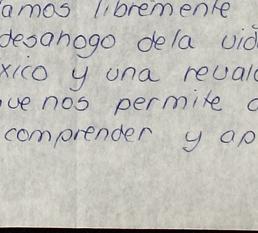 amos libremente
desahogo de la vid
xico y una reval
ue nos permite
comprender y ap